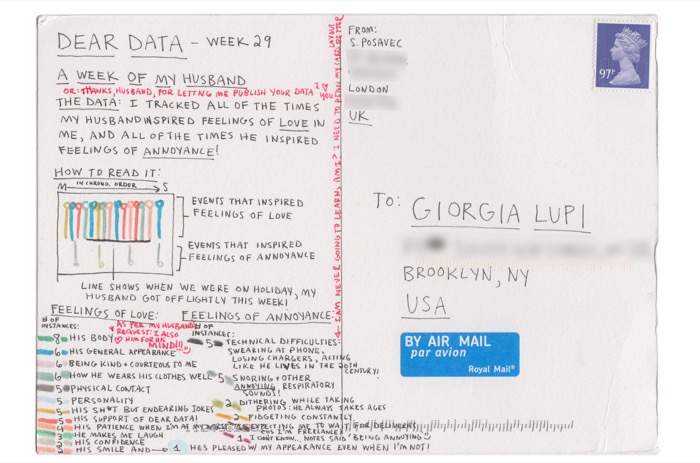 DEAR DATA - WEEK 29
A WEEK OF MY HUSBAND
OR: THANKS, HUSBAND, FOR LETTING ME PUBLISH YOUR DATA
I ♥ YOU
THE DATA: I TRACKED ALL OF THE TIMES
MY HUSBAND INSPIRED FEELINGS OF LOVE IN
ME, AND ALL OF THE TIMES HE INSPIRED
FEELINGS OF ANNOYANCE!
HOW TO READ IT:
M IN CHRONO. ORDER S
EVENTS THAT INSPIRED
FEELINGS OF LOVE
EVENTS THAT INSPIRED
FEELINGS OF ANNOYANCE
LINE SHOWS WHEN WE WERE ON HOLIDAY, MY
HUSBAND GOT OFF LIGHTLY THIS WEEK!
FEELINGS OF LOVE:
# OF
INSTANCES:
AS PER MY HUSBAND'S
REQUEST: I ALSO
♥ HIM FOR HIS
MIND!!!
8 HIS BODY
6 HIS GENERAL APPEARANCE
6 BEING KIND + COURTEOUS TO ME
6 HOW HE WEARS HIS CLOTHES WELL
5 PHYSICAL CONTACT
5 PERSONALITY
5 HIS SH*T BUT ENDEARING JOKES
5 HIS SUPPORT OF DEAR DATA!
4 HIS PATIENCE WHEN I'M AT MY WORST
3 HE MAKES ME LAUGH
2 HIS CONFIDENCE
2 HIS SMILE AND → 1 HE'S PLEASED W/ MY APPEARANCE EVEN WHEN I'M NOT!
FEELINGS OF ANNOYANCE:
# OF
INSTANCES:
5 TECHNICAL DIFFICULTIES:
SWEARING AT PHONE,
LOSING CHARGERS, ACTING
LIKE HE LIVES IN THE 20TH
CENTURY!
5 SNORING + OTHER
ANNOYING RESPIRATORY
SOUNDS!
2 DITHERING WHILE TAKING
PHOTOS: HE ALWAYS TAKES AGES
2 FIDGETING CONSTANTLY
EXPECTING ME TO WAIT FOR DELIVERIES
COS I'M FREELANCE!
1 I DON'T KNOW... NOTES SAID 'BEING ANNOYING'
I AM NEVER GOING TO LEARN, AM I? I NEED TO PLAN MY CARD LAYOUT BETTER
FROM:
S. POSAVEC
LONDON
UK
97P
TO: GIORGIA LUPI
BROOKLYN, NY
USA
BY AIR MAIL
par avion
Royal Mail®